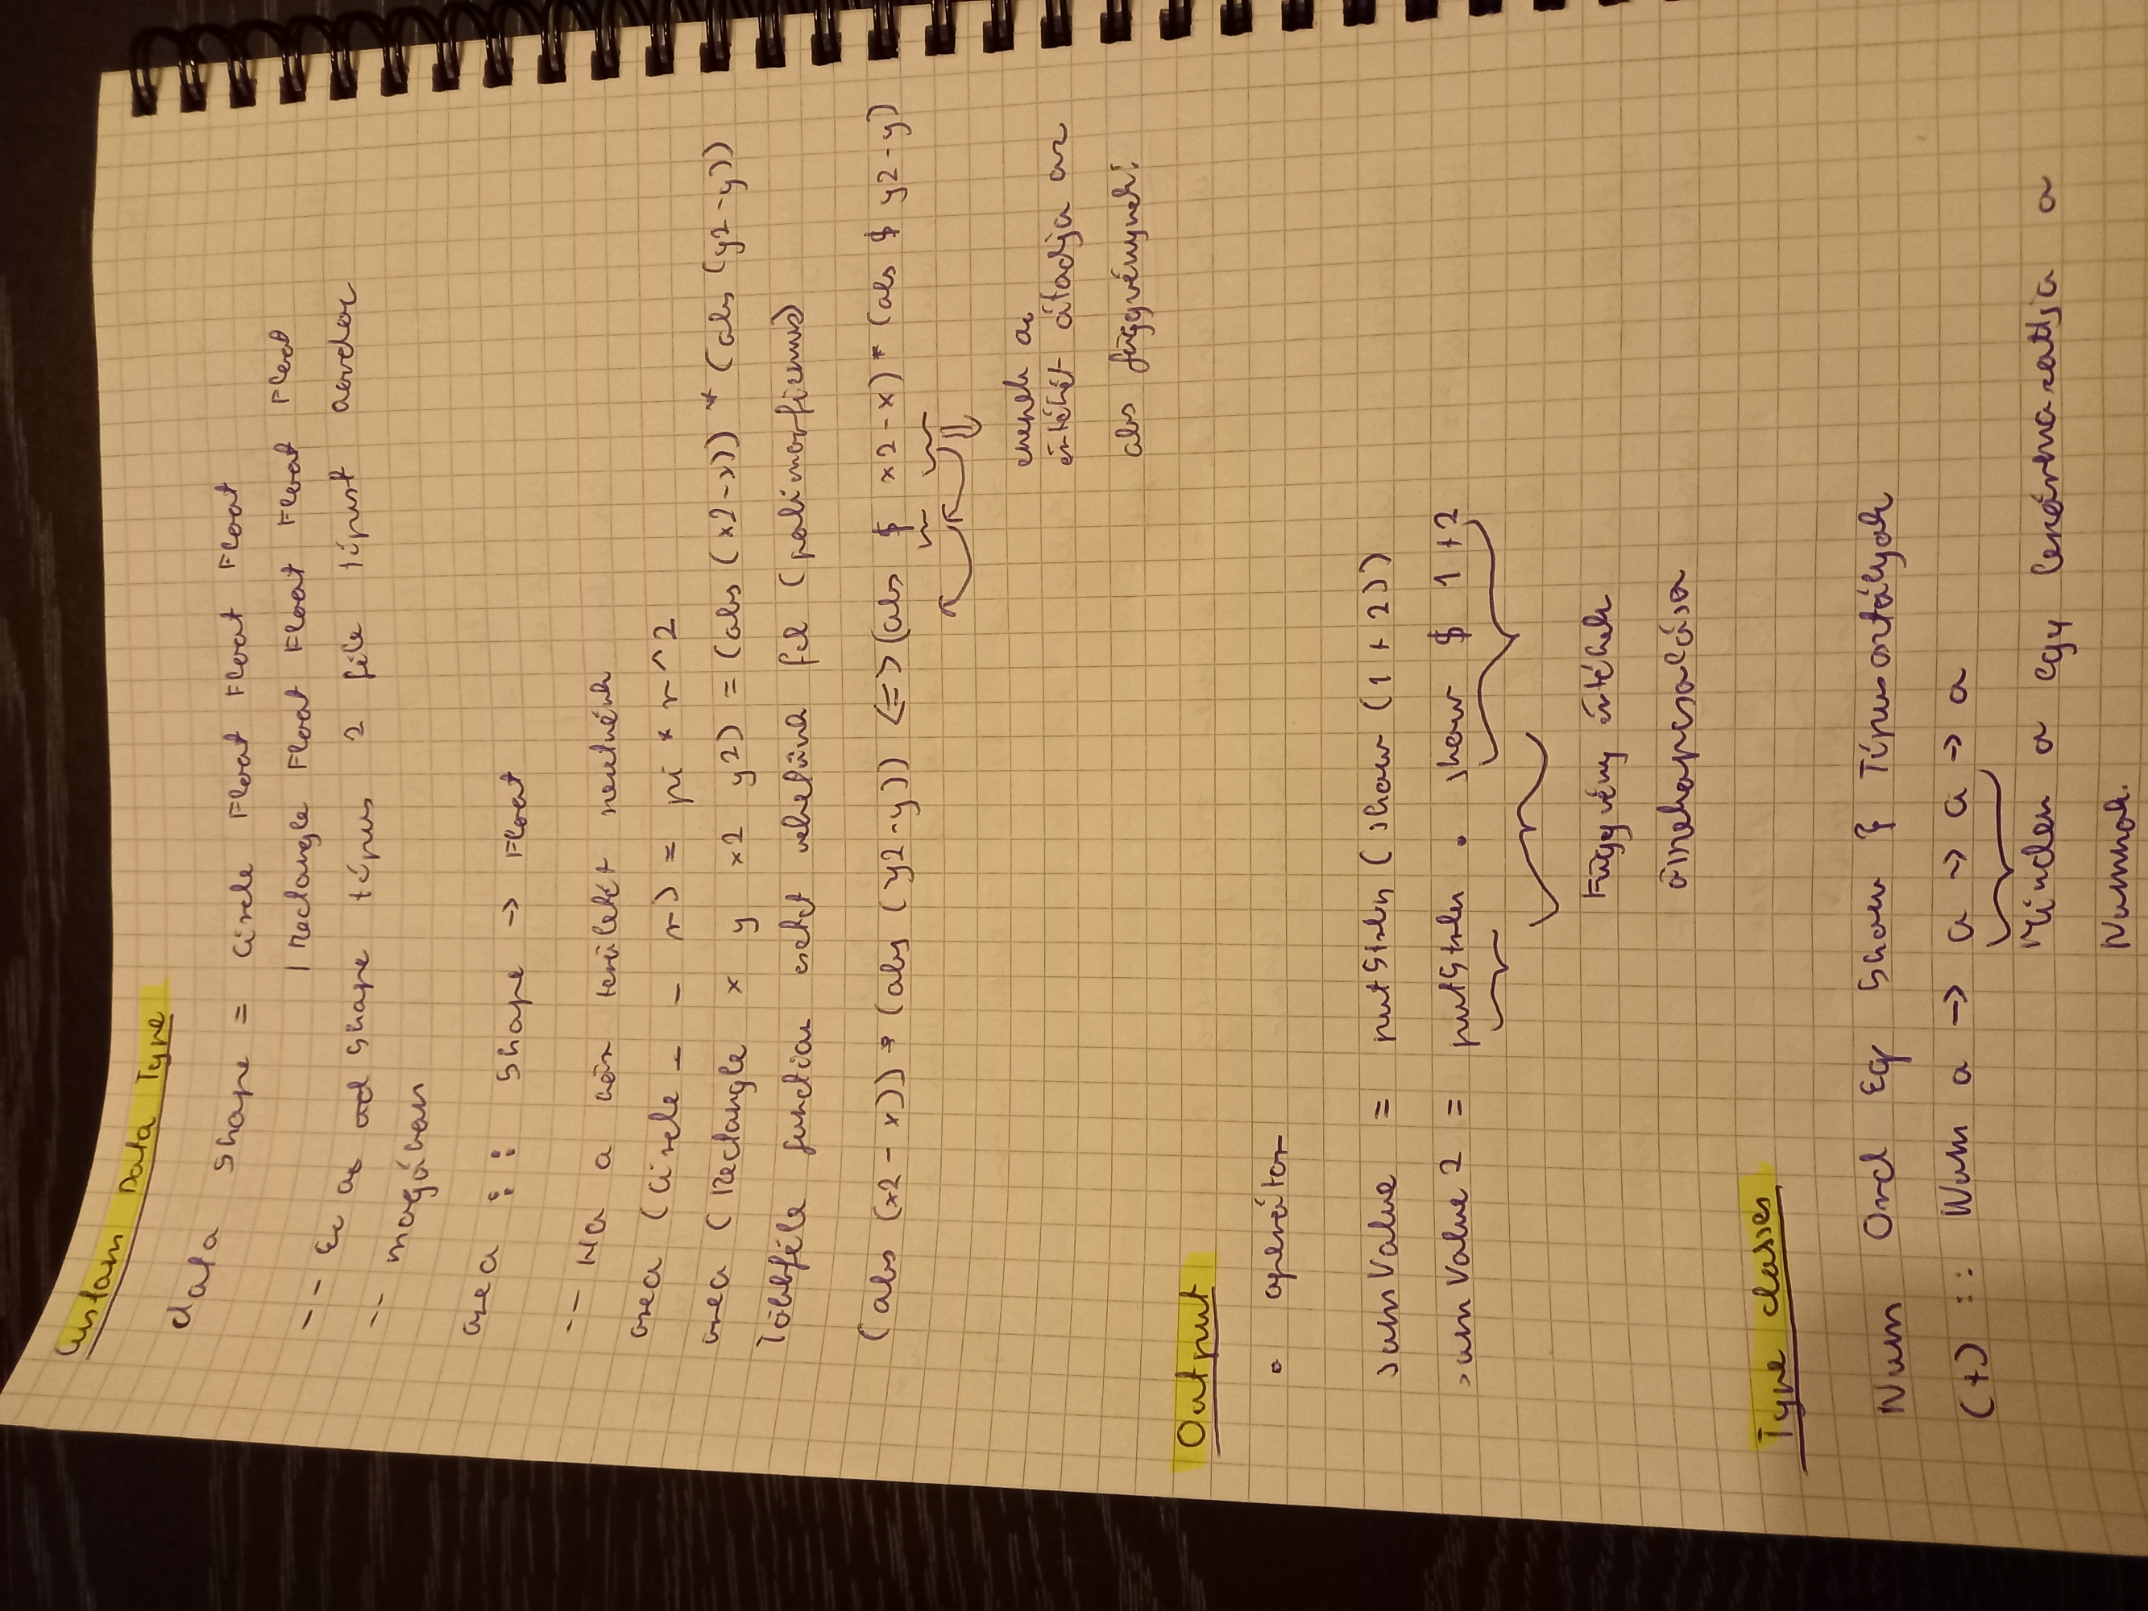 Custom Data Type
data Shape = Circle Float Float Float
| Rectangle Float Float Float Float
-- Ez az Shape típus 2 féle típust hordoz
-- magában
area :: Shape -> Float
-- Ha a kör területét szeretnénk
area (Circle _ _ r) = pi * r^2
area (Rectangle x y x2 y2) = (abs (x2-x)) * (abs (y2-y))
Többféle function esetet vehetünk fel (polimorfizmus)
(abs (x2-x)) * (abs (y2-y)) <=> (abs $ x2-x) * (abs $ y2-y)
ennek az
értékét átadja az
abs függvénynek!
Output
. operátor
sumValue = putStrLn (show (1+2))
sumValue2 = putStrLn . show $ 1+2
Függvény értékek
összekapcsolása
Type classes
Num Ord Eq Show } Típusosztályok
(+) :: Num a -> a -> a -> a
Minden a egy leszármazottja a
Numnak.